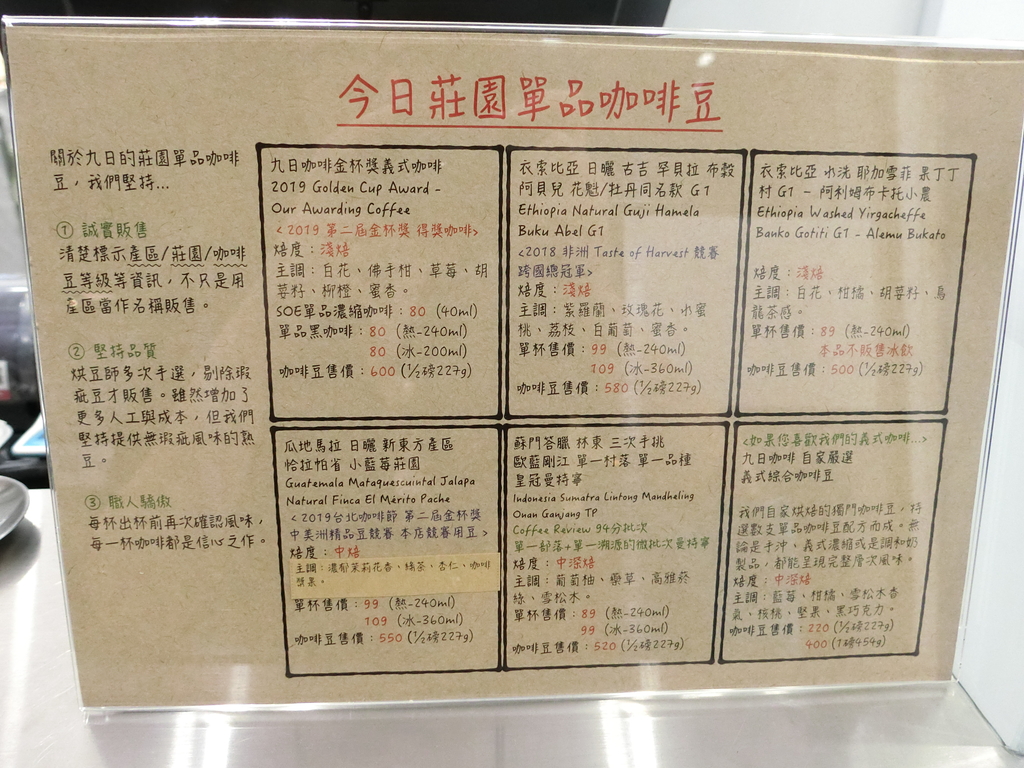 今日莊園單品咖啡豆
關於九日的莊園單品咖啡
豆，我們堅持...
① 誠實販售
清楚標示產區/莊園/咖啡
豆等級等資訊，不只是用
產區當作名稱販售。
② 堅持品質
烘豆師多次手選，剔除瑕
疵豆才販售。雖然增加了
更多人工與成本，但我們
堅持提供無瑕疵風味的熟
豆。
③ 職人驕傲
每杯出杯前再次確認風味，
每一杯咖啡都是信心之作。
九日咖啡金杯獎義式咖啡
2019 Golden Cup Award -
Our Awarding Coffee
<2019 第二屆金杯獎 得獎咖啡>
焙度：淺焙
主調：白花、佛手柑、草莓、胡
荽籽、柳橙、蜜香。
SOE單品濃縮咖啡：80 (40ml)
單品黑咖啡：80 (熱-240ml)
80 (冰-200ml)
咖啡豆售價：600 (½磅227g)
衣索比亞 日曬 古吉 罕貝拉 布穀
阿貝兒 花魁/牡丹同名款 G1
Ethiopia Natural Guji Hamela
Buku Abel G1
<2018 非洲 Taste of Harvest 競賽
跨國總冠軍>
焙度：淺焙
主調：紫羅蘭、玫瑰花、水蜜
桃、荔枝、白葡萄、蜜香。
單杯售價：99 (熱-240ml)
109 (冰-360ml)
咖啡豆售價：580 (½磅227g)
衣索比亞 水洗 耶加雪菲 果丁丁
村 G1 - 阿利姆布卡托小農
Ethiopia Washed Yirgacheffe
Banko Gotiti G1 - Alemu Bukato
焙度：淺焙
主調：白花、柑橘、胡荽籽、烏
龍茶感。
單杯售價：89 (熱-240ml)
本品不販售冰飲
咖啡豆售價：500 (½磅227g)
瓜地馬拉 日曬 新東方產區
恰拉帕省 小藍莓莊園
Guatemala Mataquescuintal Jalapa
Natural Finca El Mérito Pache
<2019台北咖啡節 第二屆金杯獎
中美洲精品豆競賽 本店競賽用豆>
焙度：中焙
主調：濃郁茉莉花香、綠茶、杏仁、咖啡
漿果。
單杯售價：99 (熱-240ml)
109 (冰-360ml)
咖啡豆售價：550 (½磅227g)
蘇門答臘 林東 三次手挑
歐藍剛江 單一村落 單一品種
皇冠曼特寧
Indonesia Sumatra Lintong Mandheling
Onan Ganjang TP
Coffee Review 94分批次
單一部落+單一溯源的微批次曼特寧
焙度：中深焙
主調：葡萄柚、藥草、高雅菸
絲、雪松木。
單杯售價：89 (熱-240ml)
99 (冰-360ml)
咖啡豆售價：520 (½磅227g)
<如果您喜歡我們的義式咖啡...>
九日咖啡 自家嚴選
義式綜合咖啡豆
我們自家烘焙的獨門咖啡豆，特
選數支單品咖啡豆配方而成。無
論是手沖、義式濃縮或是調和奶
製品，都能呈現完整層次風味。
焙度：中深焙
主調：藍莓、柑橘、雪松木香
氣、核桃、堅果、黑巧克力。
咖啡豆售價：220 (½磅227g)
400 (1磅454g)